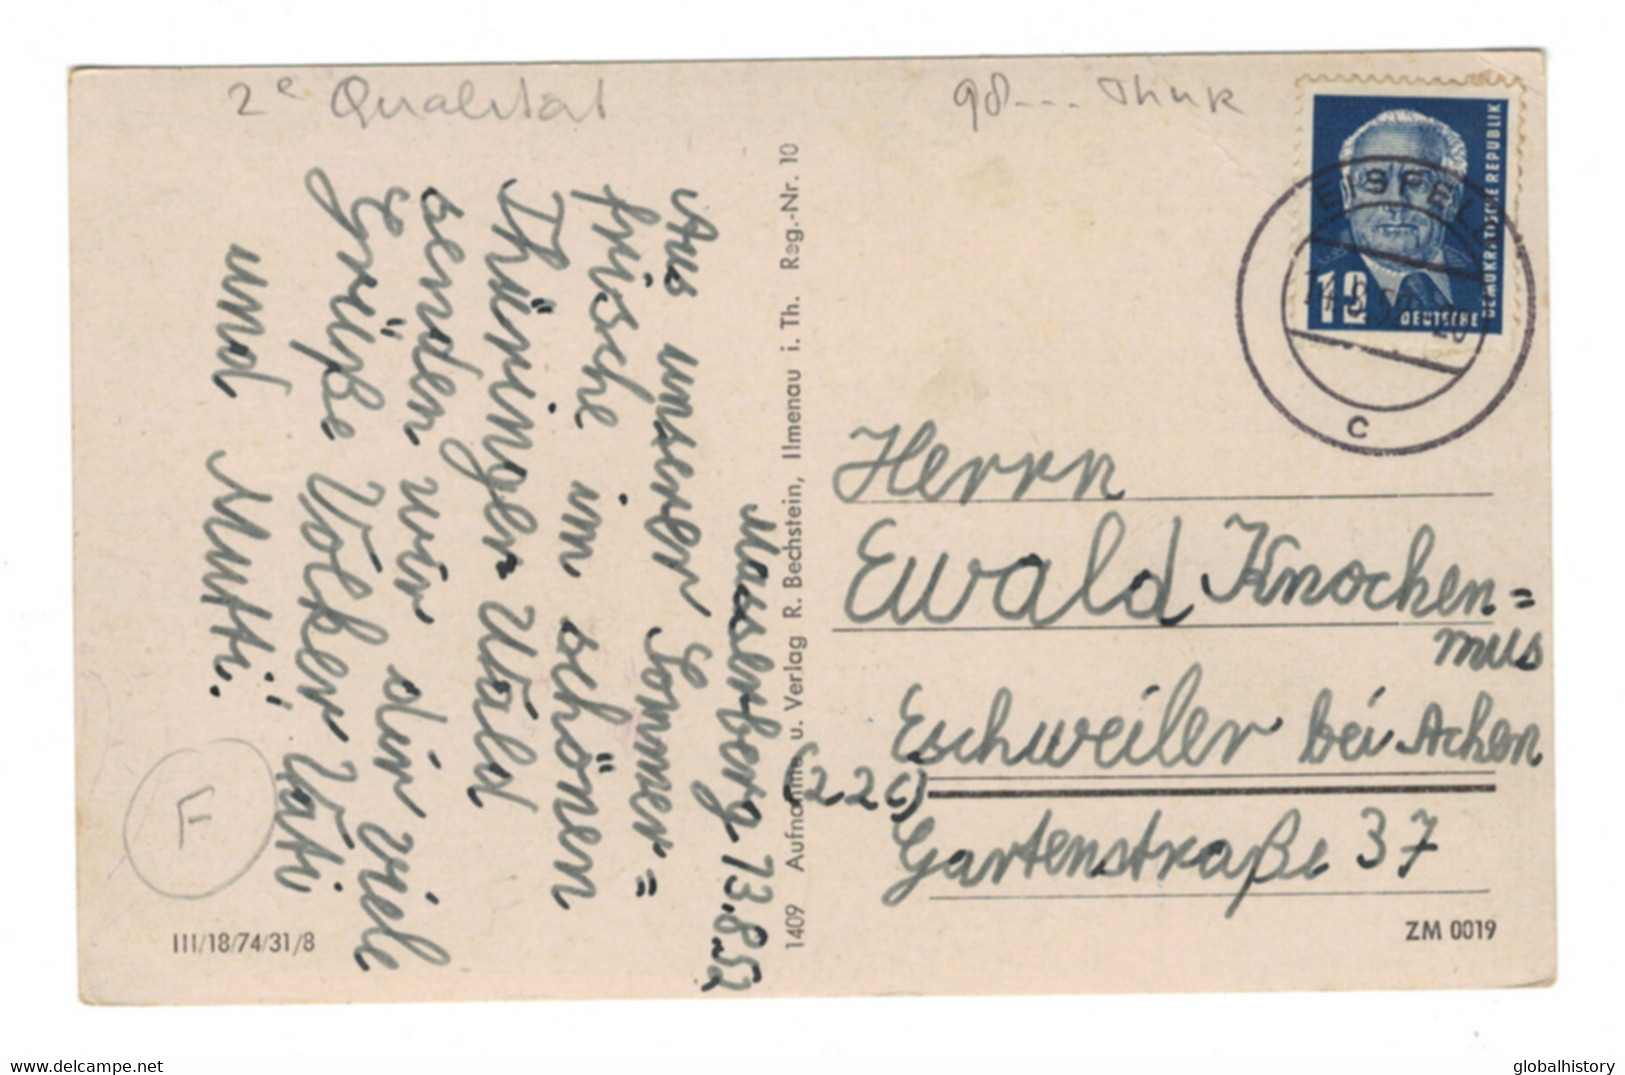 2e Qualität
98--- Thur
DEUTSCHE DEMOKRATISCHE REPUBLIK
12
EISFELD
c
Mauserberg, 13.8.52
Aus unserer Sommer=
frische im schönen
Thüringer Wald
senden wir dir viele
Grüße Volker Vati
und Mutti!
F
III/18/74/31/8
1409 Aufnahme u. Verlag R. Bechstein, Ilmenau i. Th. Reg.-Nr. 10
Herrn
Ewald Knochen=
mus
Eschweiler bei Achen
(22c)
Gartenstraße 37
ZM 0019
delcampe.net
globalhistory